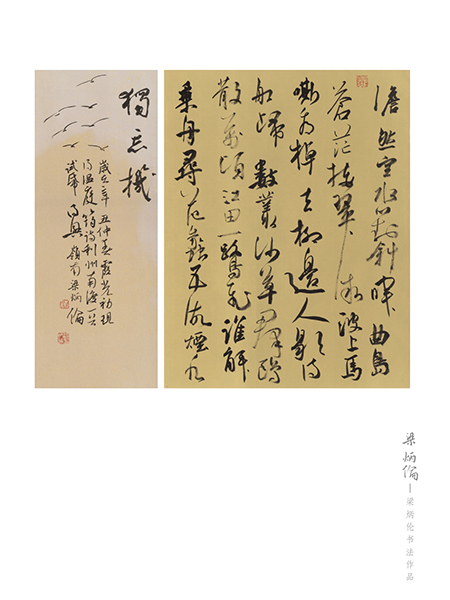 澹然空水對斜暉曲島
蒼茫接翠微波上馬
嘶看棹去柳邊人歇待
船歸數叢沙草群鷗
散萬頃江田一鷺飛誰解
乘舟尋范蠡五湖煙水
獨忘機
歲在辛丑仲春霞光初現
溫庭筠詩利州南渡一
試筆 嶺南梁炳倫
梁炳倫
梁炳伦书法作品